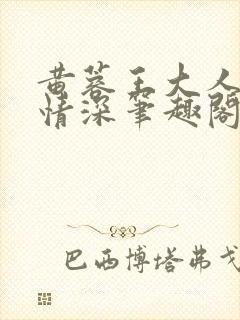 黄蓉王大人
情深笔趣阁
巴西博塔弗戈